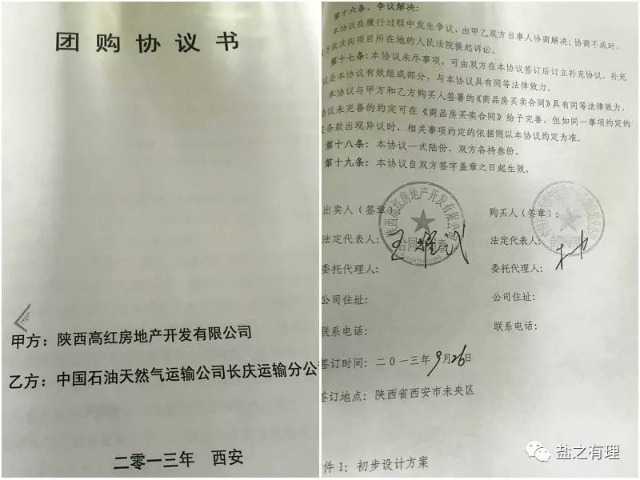 团购协议书
甲方：陕西高红房地产开发有限公司
乙方：中国石油天然气运输公司长庆运输分公
二零一三年 西安
第十六条、争议解决：
本协议在履行过程中发生争议，由甲乙双方当事人协商解决；协商不成时，
依法向项目所在地的人民法院提起诉讼。
第十七条：本协议未尽事项，可由双方在本协议签订后订立补充协议，补充
协议是本协议有效组成部分，与本协议具有同等法律效力。
本协议与甲方和乙方购买人签署的《商品房买卖合同》具有同等法律效力，
协议未完善的约定可在《商品房买卖合同》给予完善，但如同一事项约定的
条款出现异议时，相关事项约定的依据则以本协议约定为准。
第十八条：本协议一式陆份，双方各持叁份。
第十九条：本协议自双方签字盖章之日起生效。
出卖人（签章）：
购买人（签章）：
陕西高红房地产开发有限公司
法定代表人：
法定代表人：
委托代理人：
委托代理人：
公司住址：
公司住址：
联系电话：
联系电话：
签订时间：二0一三年9月26日
签订地点：陕西省西安市未央区
件1：初步设计方案
盐之有理